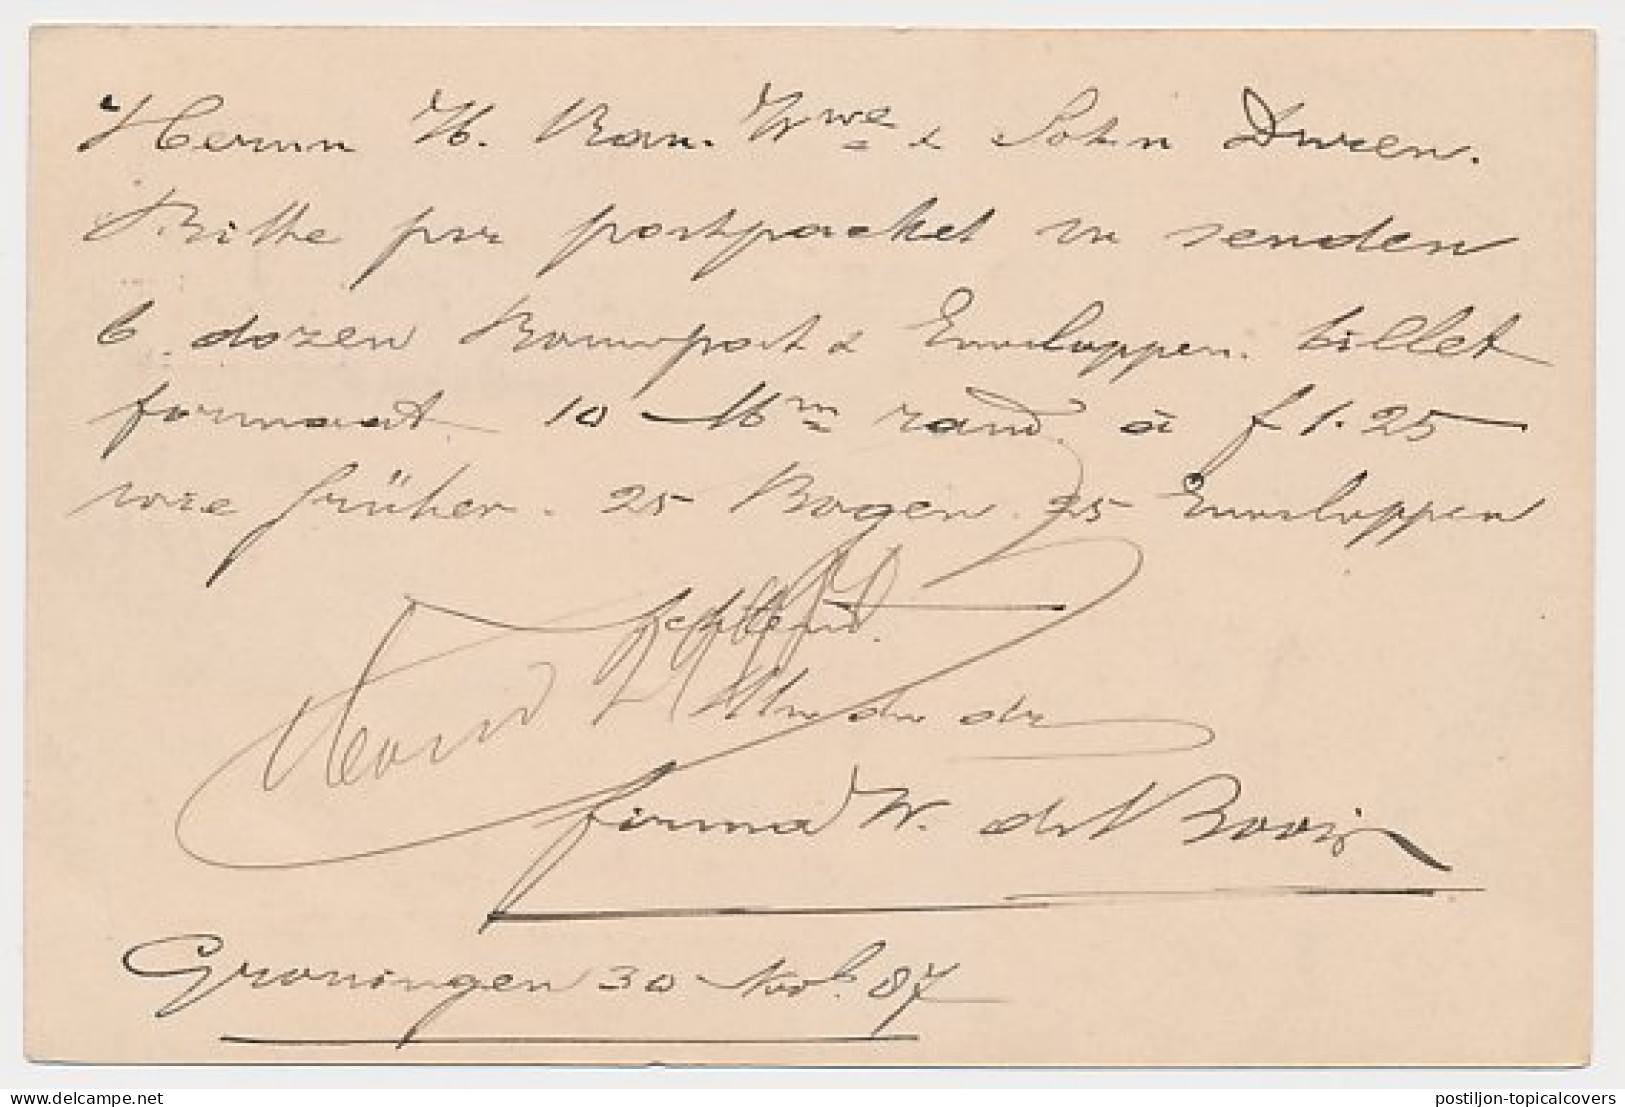 Herrn H. Rau. Wwe & Sohn Duren.
Bitte per postpacket zu senden
6 dozen Rouwpost & Enveloppen. billet
formaat 10 Mm rand. à f 1.25
wie früher. 25 Bogen. 25 Enveloppen
firma W. de
Groningen 30 Novb. 87
delcampe.net
postiljon-topicalcovers